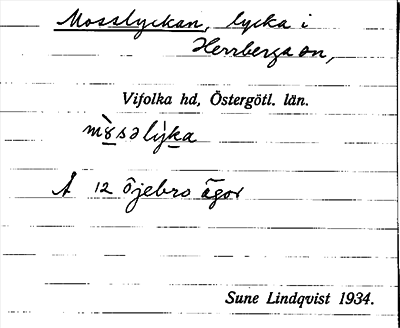 Mosslyckan, lycka i
Herrberga sn,
Vifolka hd, Östergötl. län.
mò̱sə lỳka
Å 12 Öjebro ägor
Sune Lindqvist 1934.